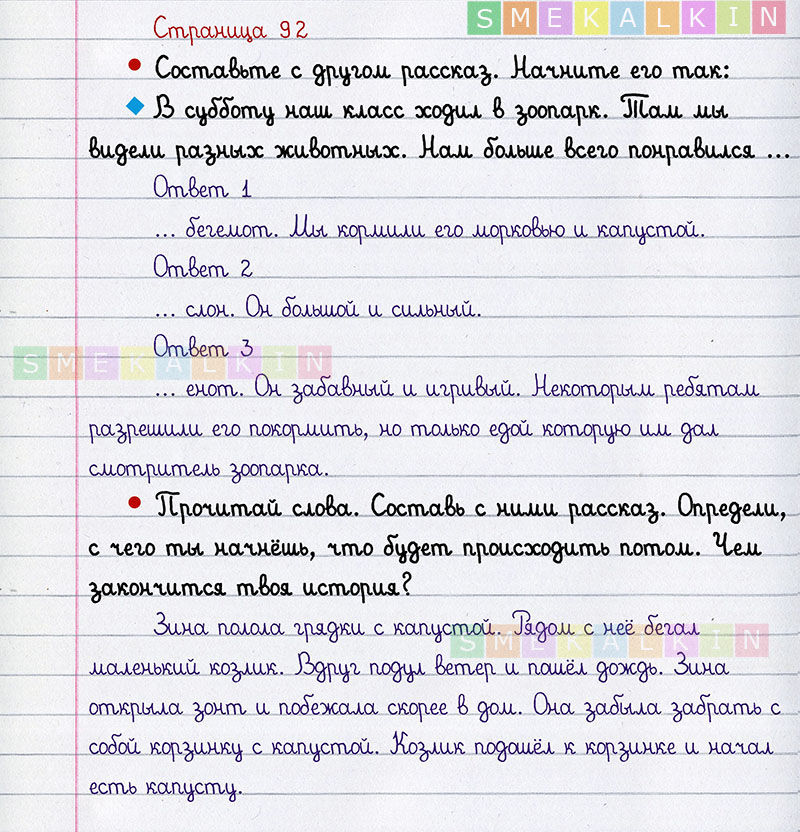 SMEKALKIN
Страница 92
Составьте с другом рассказ. Начните его так:
В субботу наш класс ходил в зоопарк. Там мы
видели разных животных. Нам больше всего понравился ...
Ответ 1
... бегемот. Мы кормили его морковью и капустой.
Ответ 2
... слон. Он большой и сильный.
Ответ 3
SMEKALKIN
... енот. Он забавный и игривый. Некоторым ребятам
разрешили его покормить, но только едой которую им дал
смотритель зоопарка.
Прочитай слова. Составь с ними рассказ. Определи,
с чего ты начнёшь, что будет происходить потом. Чем
закончится твоя история?
Зина полола грядки с капустой. Рядом с неё бегал
SMEKALKIN
маленький козлик. Вдруг подул ветер и пошёл дождь. Зина
открыла зонт и побежала скорее в дом. Она забыла забрать с
собой корзинку с капустой. Козлик подошёл к корзинке и начал
есть капусту.